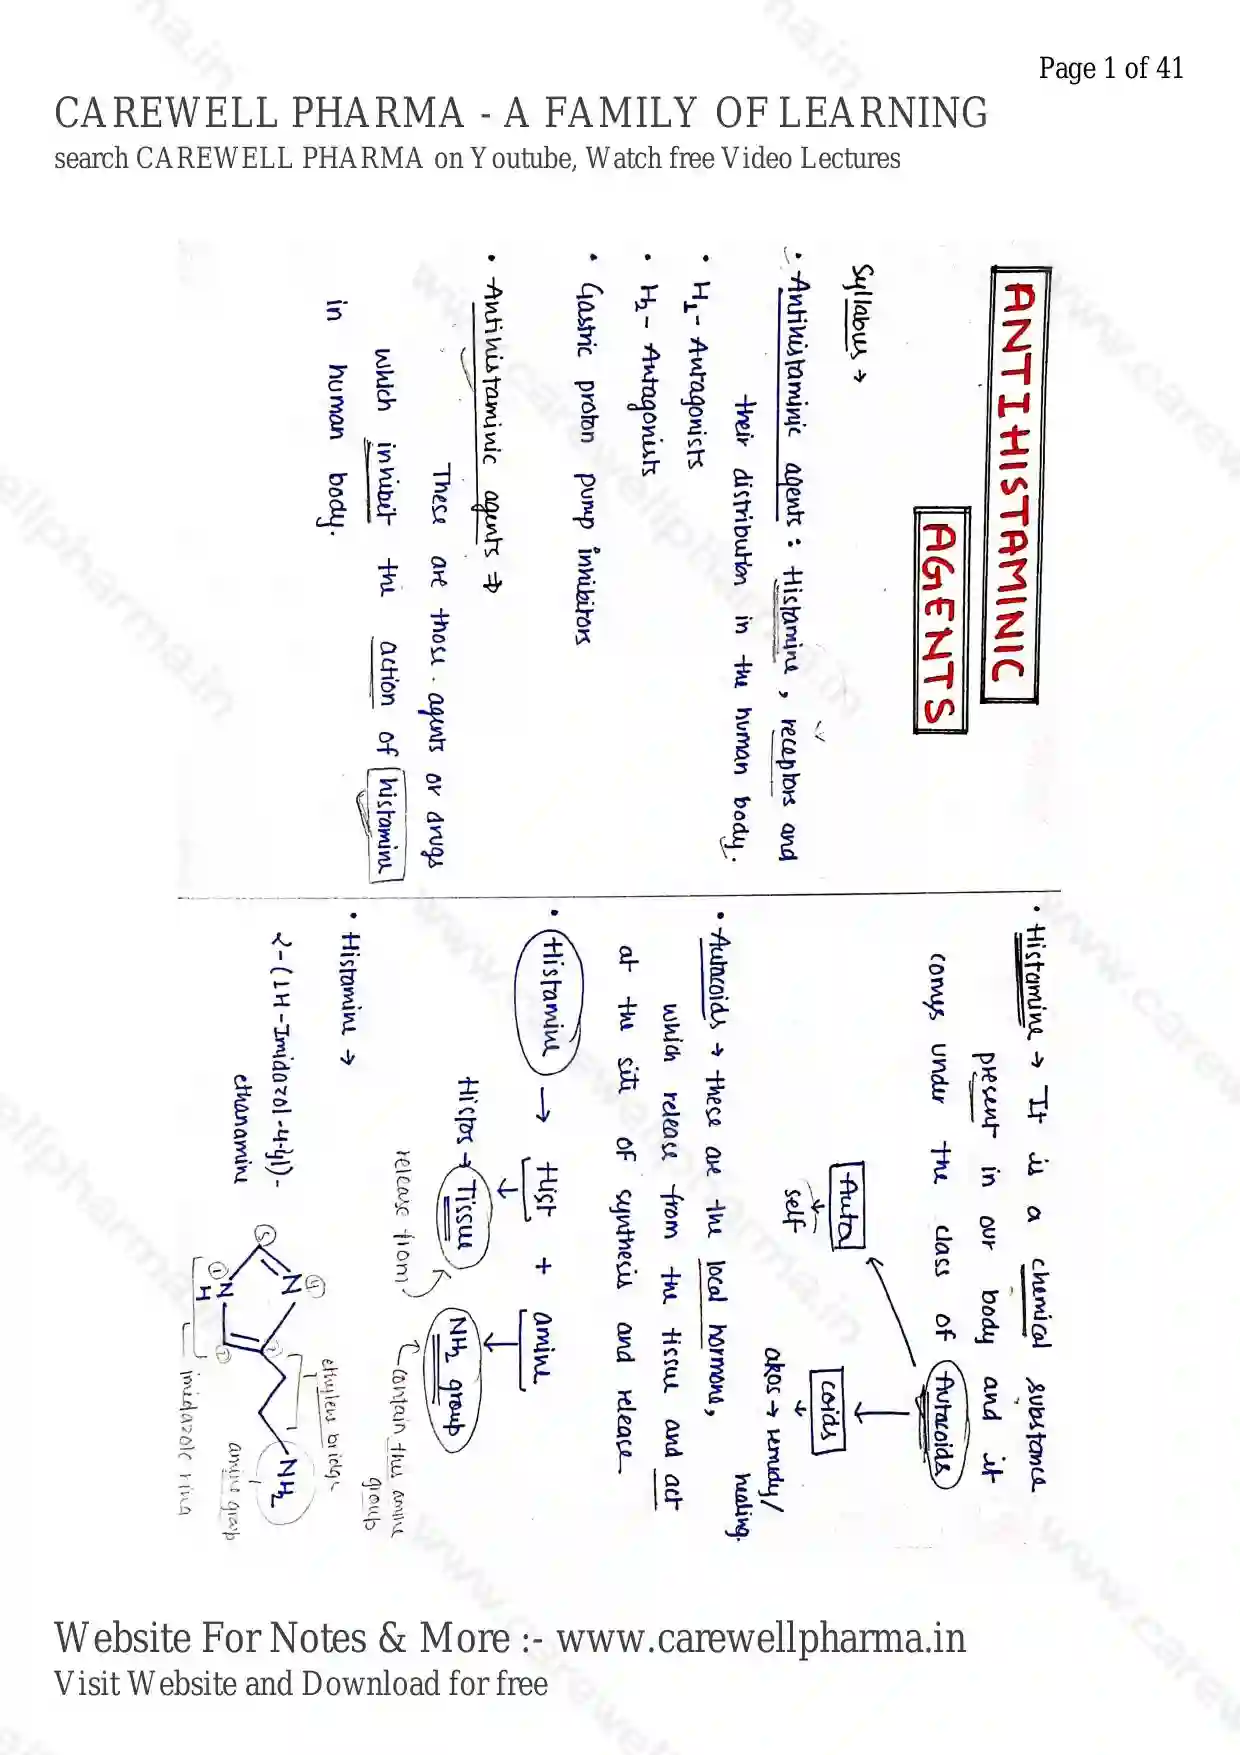 Page 1 of 41
CAREWELL PHARMA - A FAMILY OF LEARNING
search CAREWELL PHARMA on Youtube, Watch free Video Lectures
ANTIHISTAMINIC
AGENTS
Syllabus →
• Antihistaminic agents : Histamine, receptors and
their distribution in the human body.
• H1 - Antagonists
• H2 - Antagonists
• Gastric proton pump inhibitors
• Antihistaminic agents →
These are those agents or drugs
which inhibit the action of histamine
in human body.
• Histamine → It is a chemical substance
present in our body and it
comes under the class of Autacoids
Auto coids
self akos → remedy/
healing.
• Autacoids → these are the local hormone,
which release from the tissue and act
at the site of synthesis and release
• Histamine → Hist + amine
Histos → Tissue NH2 group
release from contain this amine
group
• Histamine →
2-(1H-Imidazol-4-yl)-
ethanamine
5
N 4
1 N
H
2
3
NH2
ethylene bridge
amine group
imidazole ring
Website For Notes & More :- www.carewellpharma.in
Visit Website and Download for free
www.carewellpharma.in